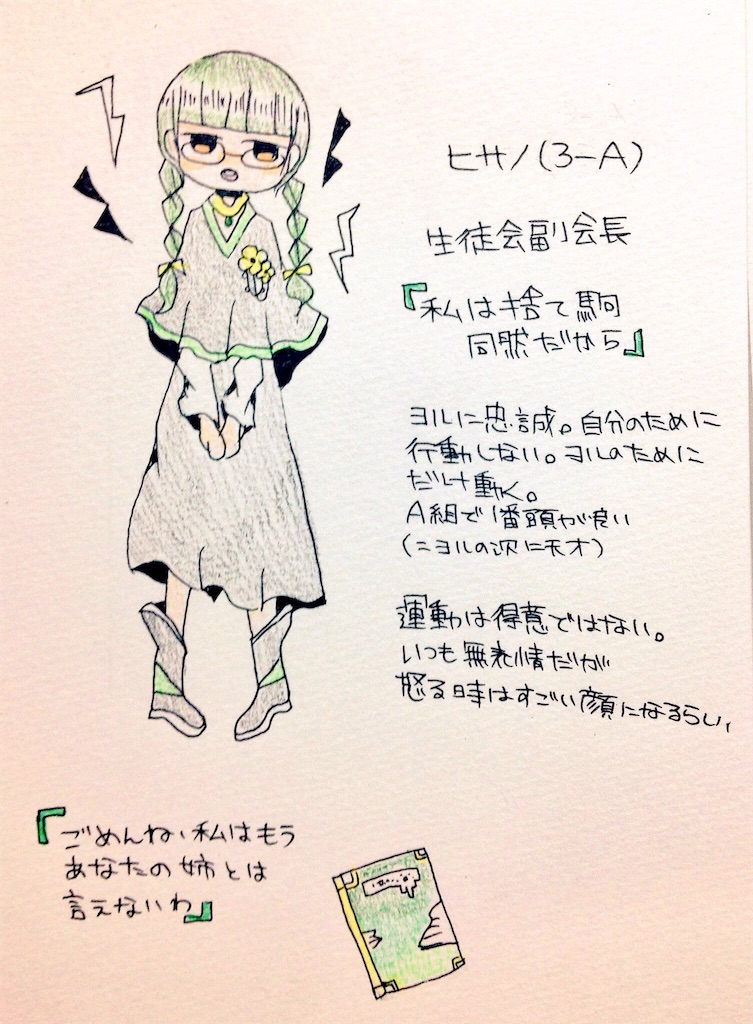 ヒサノ(3-A)
生徒会副会長
『私は捨て駒
同然だから』
ヨルに忠誠。自分のために
行動しない。ヨルのために
だけ動く。
A組で1番頭が良い
(=ヨルの次に天才)
運動は得意ではない。
いつも無表情だが
怒る時はすごい顔になるらしい。
『ごめんね、私はもう
あなたの姉とは
言えないわ』